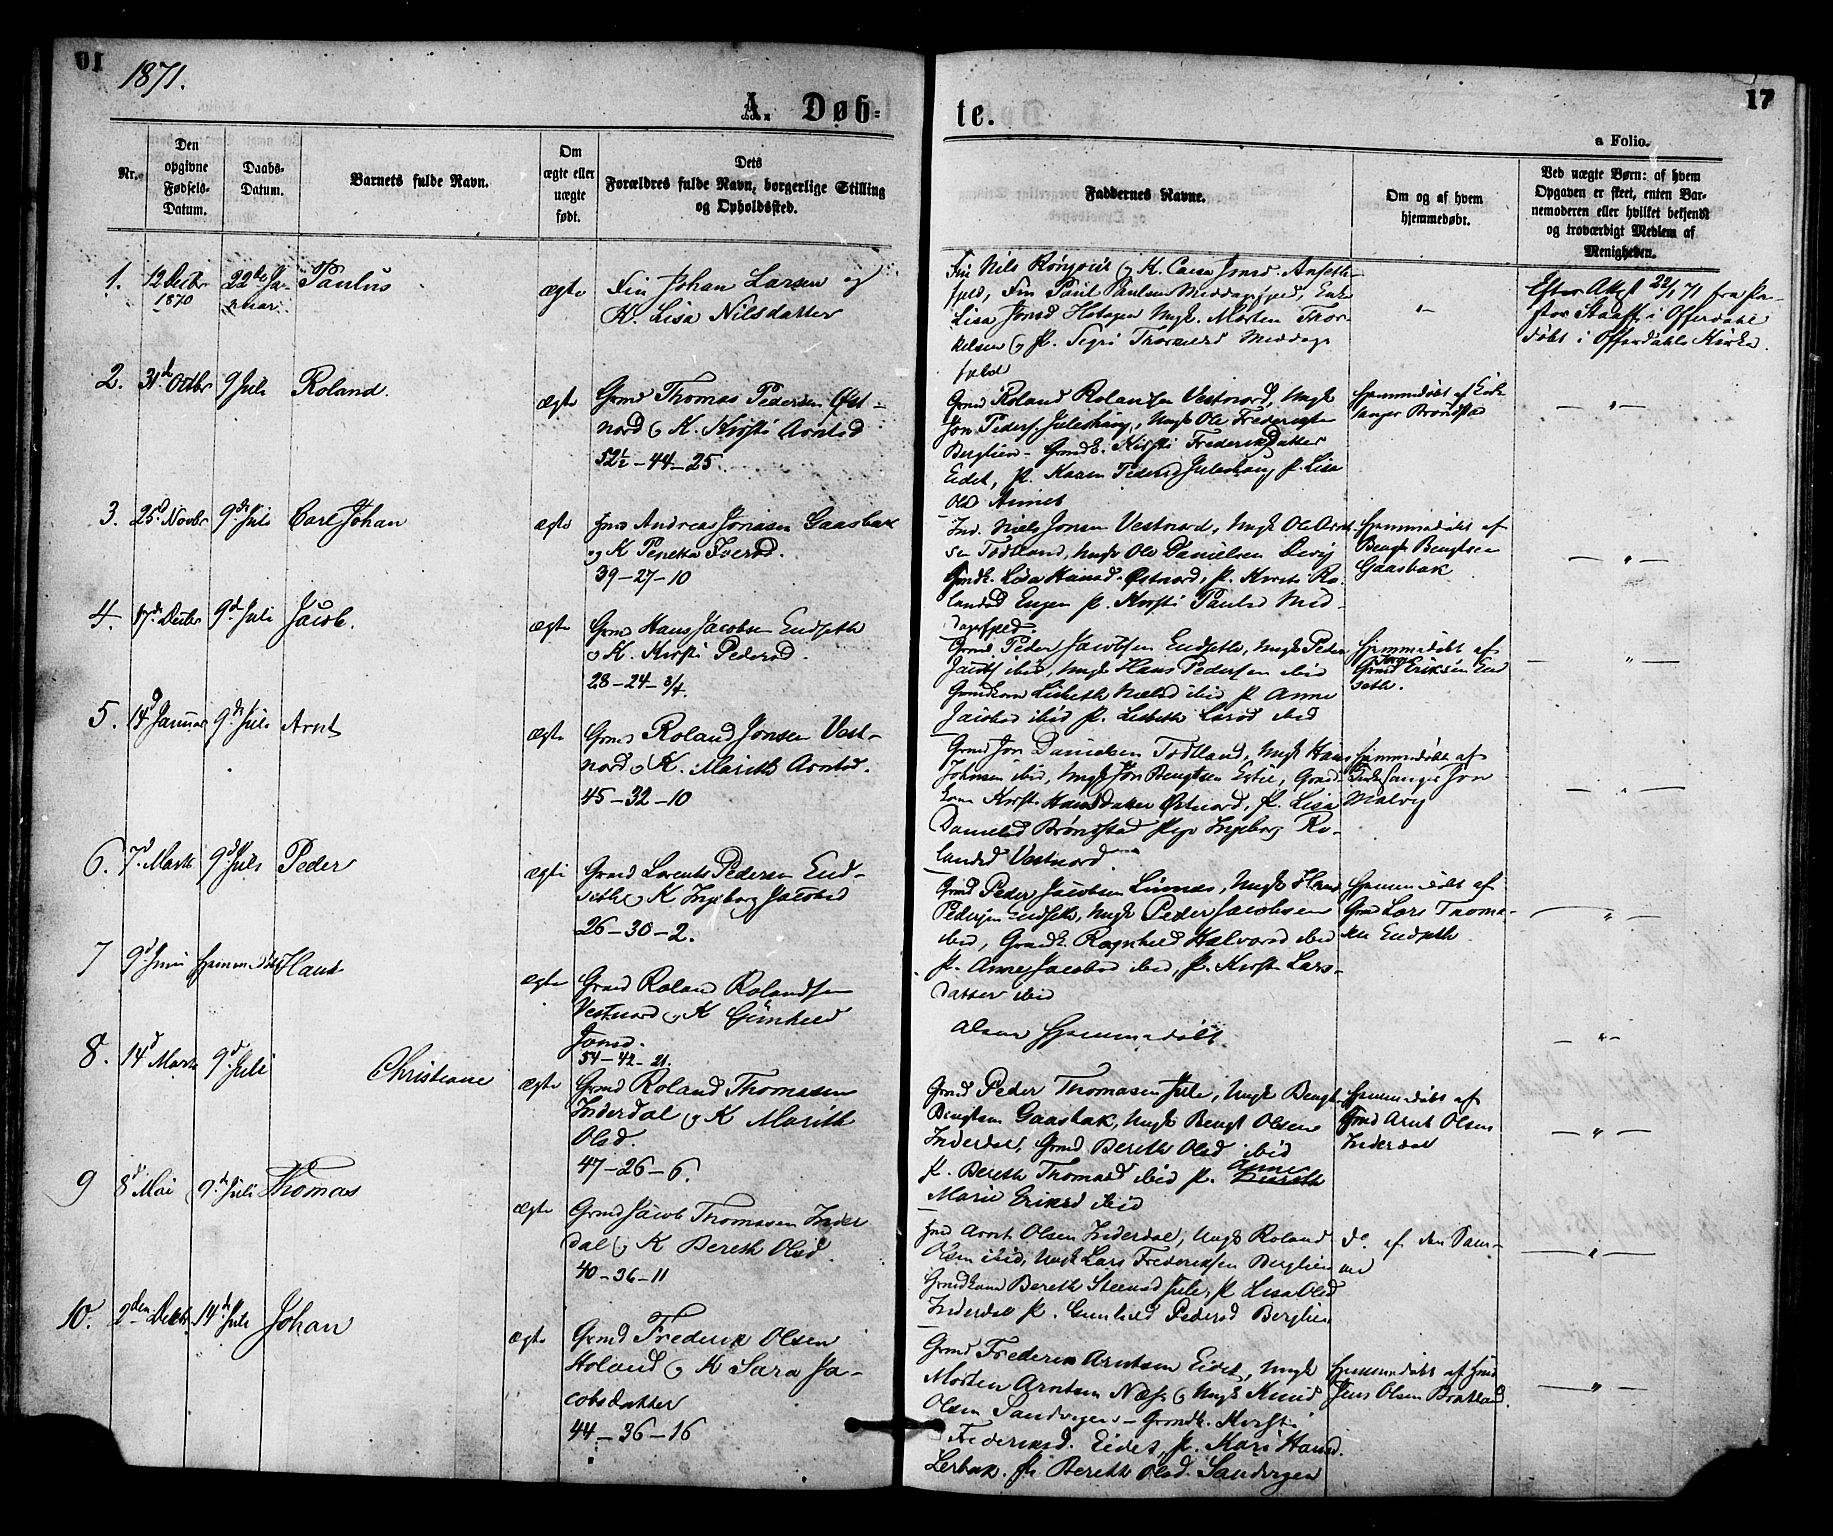 1871.
17
A. Døb-
te.
a Folio.
Nr.
Den opgivne Fødsels-Datum.
Daabs-Datum.
Barnets fulde Navn.
Om ægte eller uægte født.
Dets Forældres fulde Navn, borgerlige Stilling og Opholdssted.
Faddernes Navne.
Om og af hvem hjemmedøbt.
Ved uægte Børn: af hvem Opgaven er skeet, enten Barnemoderen eller hvilket bekjendt og troværdigt Medlem af Menigheden.
1. 12 Decbr 1870
22de Januar
Paulus
ægte
Fin Johan Larsen og
K. Lisa Nilsdatter
Fin Nils
fjeld, Fin Paul Paulsen Middagsfjeld, Enke
Lisa Jonsd Hotagen Ungk. Morten Thor-
kelsen og P. Sigri Middags
fjeld
Efter Attest 22/1 71 fra Pa-
stor i Offerdahl
døbt i Offerdahls Kirke.
2. 31te Octbr 9 Juli Roland.
ægte
Grmd Thomas Pedersen Øst-
nord og K. Kirsti Arntsd
52½ - 44 - 25.
Grmd Roland Rolandsen Vestnord, Ungk
Jon Peders. Julieshaug, Ungk Ole Frederiksen
Berglien - Grmdk. Kirsti Frederiksdatter
Eidet, P. Karen Pedersd Julieshaug P. Lisa
Olsd
Hjemmedøbt af Kirke-
sanger Brøndstad
3. 25d Novbr 9de Juli Carl Johan
ægte
Andreas Jonasen Gaasbak
og K Peretta Iversd.
39 - 27 - 10
Niels Jonsen Vestnord, Ungk Ole Arnt-
sen Todtland, Ungk Ole Danielsen Devig
Grmdk. Lisa Hansd. Østnord, P. Kirsti Ro-
landsd Engen P. Kirsti Paulsd Mid-
dagsfjeld.
Hjemmedøbt af
Bengt Bengtsen
Gaasbak
4. 17de Decbr 9d Juli Jacob.
ægte
Grmd Hans Jacobsen Endseth
og K. Kirsti Pedersd.
28 - 24 - 3/4.
Grmd Peder Jacobsen Endseth, Ungk Peder
Jacobs ibid, Ungk Hans Pedersen ibid
Grmdkone Lisbeth Nielsd ibid P. Anne
Jacobsd ibid P. Lisbeth Larsd ibid
Hjemmedøbt af
Grmd Eriksen End
seth.
5. 14d Januar 9de Juli Arnt
ægte
Grmd Roland Jonsen Vest-
nord og K. Marith Arntsd.
45 - 32 - 10
Grmd Jon Danielsen Todtland, Ungk Hans
Johnsen ibid, Ungk Jon Bengtsen Estil, Grmd-
kone Kirsti Hansdatter Østnord, P. Lisa
Danielsd Brøndstad Pige Ingeborg Ro-
landsd Vestnord
Hjemmedøbt af
Kirkesanger Jon
Malvig
6. 7d Marts 9d Juli Peder
ægte
Grmd Lorents Pedersen End-
seth og K Ingeborg Jacobsd
26 - 30 - 2.
Grmd Peder Jacobsen Lunnes, Ungk Hans
Pedersen Endseth, Ungk Peder Jacobsen
ibid, Grmdk. Ragnhild Halvorsd ibid
P. Anne Jacobsd ibid, P. Kirsti Lars-
datter ibid
Hjemmedøbt af
Grmd Lars Thoma-
sen Endseth
7 9d Juni Hjemmedøbt Hans
ægte
Grmd Roland Rolandsen
Vestnord og K Gunhild
Jonsd.
54 - 42 - 21.
alene hjemmedøbt.
8. 14d Marts 9d Juli
Christiane
ægte
Grmd Roland Thomasen
Inderdal og K Marith
Olsd.
47 - 26 - 6.
Grmd Peder Thomasen Jule, Ungk Bengt
Bengtsen Gaasbak, Ungk Bengt Olsen
Inderdal, Grmd Bereth Olsd ibid
P. Bereth Thomasd ibid P. Anne
Marie Eriksd ibid
Hjemmedøbt af
Grmd Arnt Olsen
Inderdal
9 8d Mai 9de Juli Thomas
ægte
Grmd Jacob Thomasen Inder
dal og K Bereth Olsd.
40 - 36 - 11
Arnt Olsen Inderdal, Ungk Roland
Olsen ibid, Ungk Lars Frederiksen Berglien
Grmdkone Bereth Steensd Jule, P. Lisa Olsd
Inderdal P. Gunhild Pedersd Berglien
do af den Sam-
me
10. 2den Decbr 14de Juli Johan
ægte
Grmd Frederik Olsen
Holand og K Sara Ja-
cobsdatter
44 - 36 - 16
Grmd Frederik Arntsen Eidet, Ungk
Morten Arntsen Næss og Ungk Knud
Olsen Sandvigen - Grmdk. Kirsti
Frederiksd. Eidet, P. Kari Hansd.
Lerbak. P. Bereth Olsd. Sandvigen
Hjemmedøbt af
Jens Olsen Bratland.